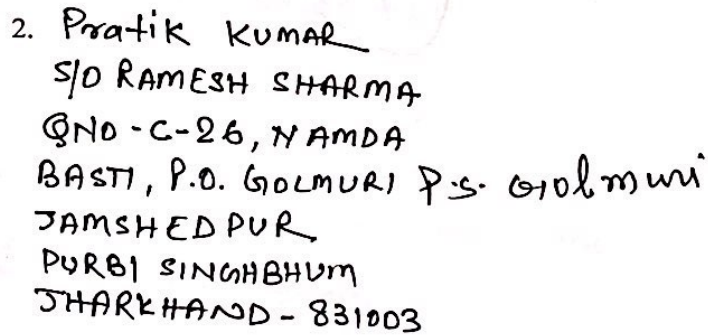 2. Pratik KUMAR
S/O RAMESH SHARMA
QNO - C-26, NAMDA
BASTI, P.O. GOLMURI P.S. Golmuri
JAMSHEDPUR
PURBI SINGHBHUM
JHARKHAND - 831003